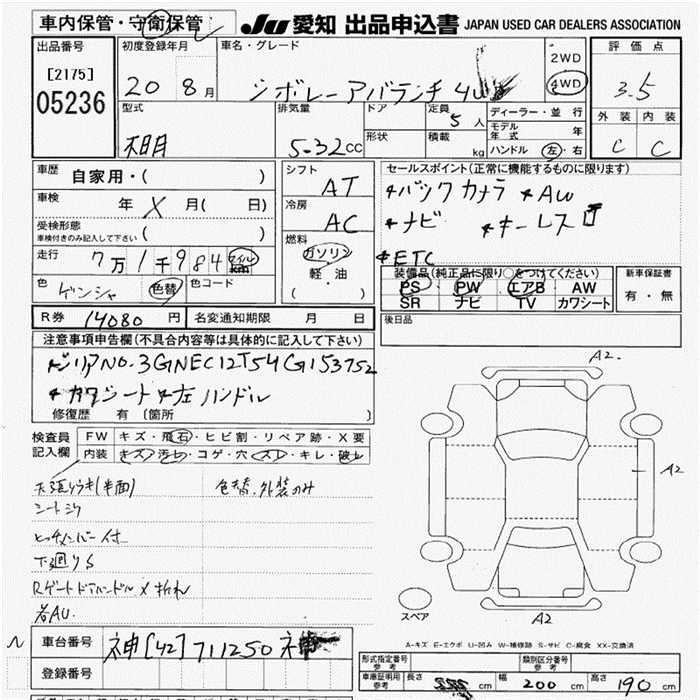 車内保管・守衛保管 JU 愛知 出品申込書 JAPAN USED CAR DEALERS ASSOCIATION
出品番号 初度登録年月 車名・グレード 2WD 評価点
[2175] 20 8月 シボレーアバランチ 4W 4WD 3.5
05236 型式 排気量 ドア 定員 ディーラー・並行 外装 内装
5人 モデル年式 年
不明 5.32cc 形状 積載 kg ハンドル 左・右 C C
車歴 自家用・( ) シフト AT セールスポイント(正常に機能するものに限ります)
車検 年 X 月( 日) 冷房 AC *バックカメラ *AW
受検形態 *ナビ *キーレス
車検付きのみ記入して下さい ( ) 燃料
走行 7万1千984 マイル km ガソリン *ETC
軽・油 装備品(純正品に限り○をつけてください) 新車保証書
色 ゲンシャ 色替 色コード ( ) PS PW エアB AW 有・無
SR ナビ TV カワシート
R券 14080円 名変通知期限 月 日 後日品
注意事項申告欄(不具合内容等は具体的に記入して下さい)
*シリアNO.3GNEC12T54G153752 A2.
*カワシート*左ハンドル
修復歴 有〔箇所 〕
検査員 FW キズ・飛石・ヒビ割・リペア跡・X要
記入欄 内装 キズ・汚れ・コゲ・穴・スレ・キレ・破レ A2
天張りうき(半面) 色替、外装のみ
シートシワ
ヒッチメンバー付
下廻りS
Rゲートドアハンドル×折れ
若AU. スペア A2
車台番号 神[42]711250神 A-キズ E-エクボ U-凹み W-補修跡 S-サビ C-腐食 XX-交換済
形式指定番号 参考 類別区分番号 参考
登録番号 車庫証明用 参考 長さ 555cm 幅 200cm 高さ 190cm